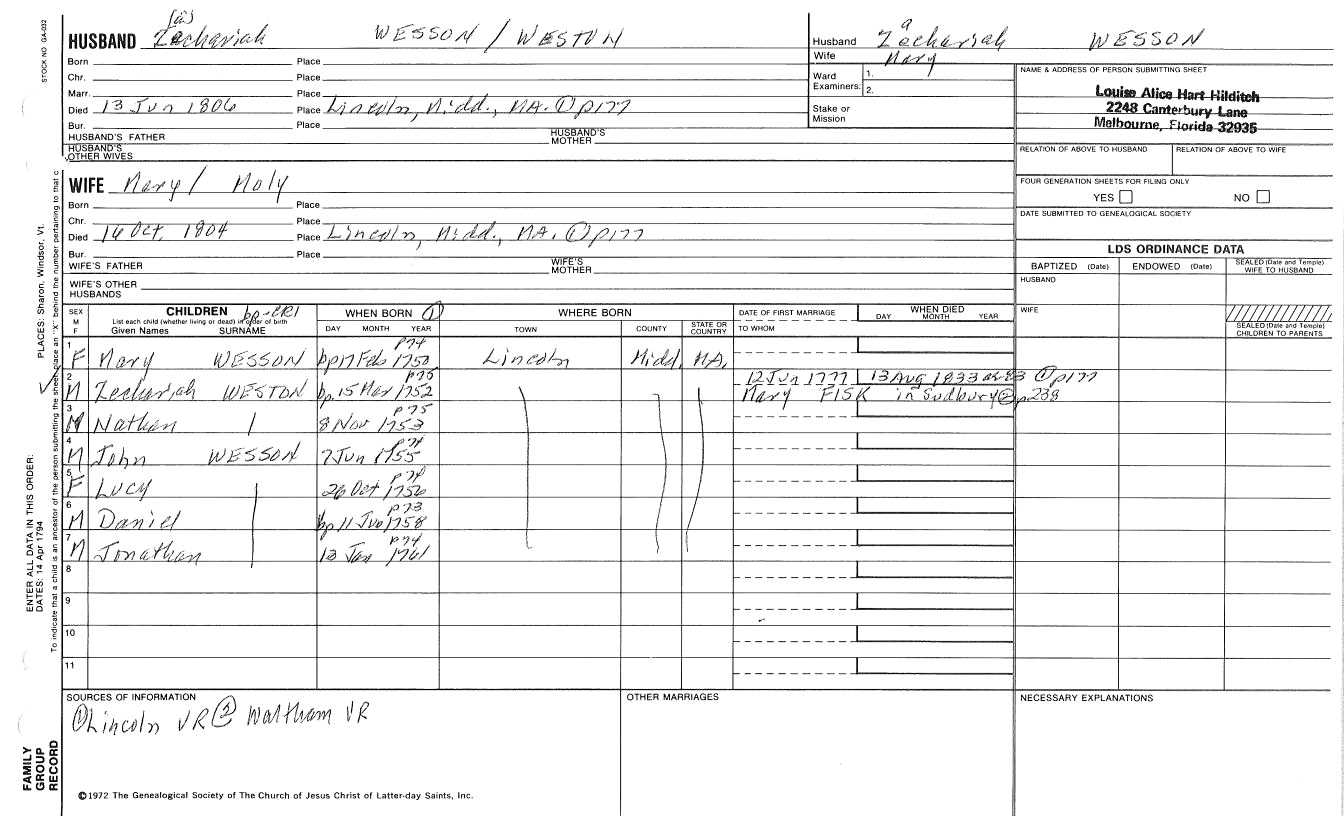 STOCK NO GA-032
(a)
HUSBAND Zechariah WESSON / WESTON
Born Place
Chr. Place
Marr. Place
Died 13 Jun 1806 Place Lincoln, Midd., MA. ① p177
Bur. Place
HUSBAND'S FATHER HUSBAND'S MOTHER
HUSBAND'S OTHER WIVES
a
Husband Zechariah WESSON
Wife Mary
Ward Examiners: 1.
2.
Stake or Mission
NAME & ADDRESS OF PERSON SUBMITTING SHEET
Louise Alice Hart Hilditch
2248 Canterbury Lane
Melbourne, Florida 32935
RELATION OF ABOVE TO HUSBAND RELATION OF ABOVE TO WIFE
FOUR GENERATION SHEETS FOR FILING ONLY
YES NO
DATE SUBMITTED TO GENEALOGICAL SOCIETY
WIFE Mary / Moly
Born Place
Chr. Place
Died 16 Oct, 1804 Place Lincoln, Midd., MA. ① p177
Bur. Place
WIFE'S FATHER WIFE'S MOTHER
WIFE'S OTHER HUSBANDS
LDS ORDINANCE DATA
BAPTIZED (Date) ENDOWED (Date) SEALED (Date and Temple) WIFE TO HUSBAND
HUSBAND
WIFE
SEALED (Date and Temple) CHILDREN TO PARENTS
SEX M F
CHILDREN bp-CR1
List each child (whether living or dead) in order of birth
Given Names SURNAME
WHEN BORN ①
DAY MONTH YEAR
WHERE BORN
TOWN COUNTY STATE OR COUNTRY
DATE OF FIRST MARRIAGE
TO WHOM
WHEN DIED
DAY MONTH YEAR
p74
1 F Mary WESSON bp 17 Feb 1750 Lincoln Midd, MA,
p75 12 Jun 1777 13 Aug 1833 ae 83 ① p177
2 M Zechariah WESTON bp. 15 Mar 1752 Mary FISK in Sudbury ② p238
p75
3 M Nathan 8 Nov 1753
p74
4 M John WESSON 7 Jun 1755
p74
5 F Lucy 26 Oct 1756
p73
6 M Daniel bp 11 Jun 1758
p74
7 M Jonathan 13 Jan 1761
8
9
10
11
SOURCES OF INFORMATION
① Lincoln VR ② Waltham VR
OTHER MARRIAGES
NECESSARY EXPLANATIONS
©1972 The Genealogical Society of The Church of Jesus Christ of Latter-day Saints, Inc.
FAMILY GROUP RECORD
ENTER ALL DATA IN THIS ORDER:
DATES: 14 Apr 1794
PLACES: Sharon, Windsor, Vt.
To indicate that a child is an ancestor of the person submitting the sheet, place an "X" behind the number pertaining to that c